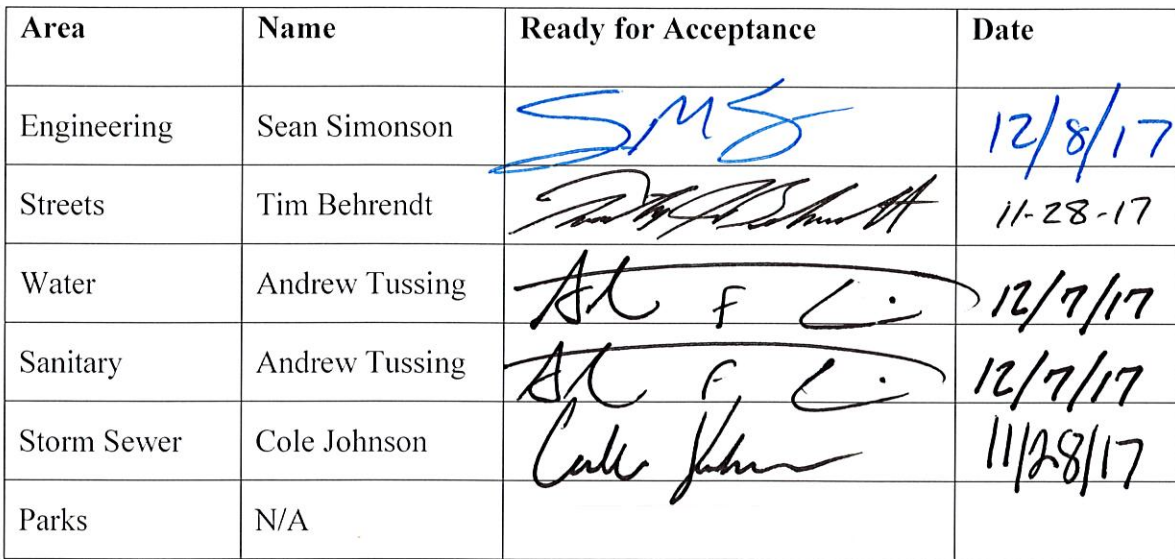 Area Name Ready for Acceptance Date
Engineering Sean Simonson SMS 12/8/17
Streets Tim Behrendt 11-28-17
Water Andrew Tussing 12/7/17
Sanitary Andrew Tussing 12/7/17
Storm Sewer Cole Johnson Cole Johnson 11/28/17
Parks N/A